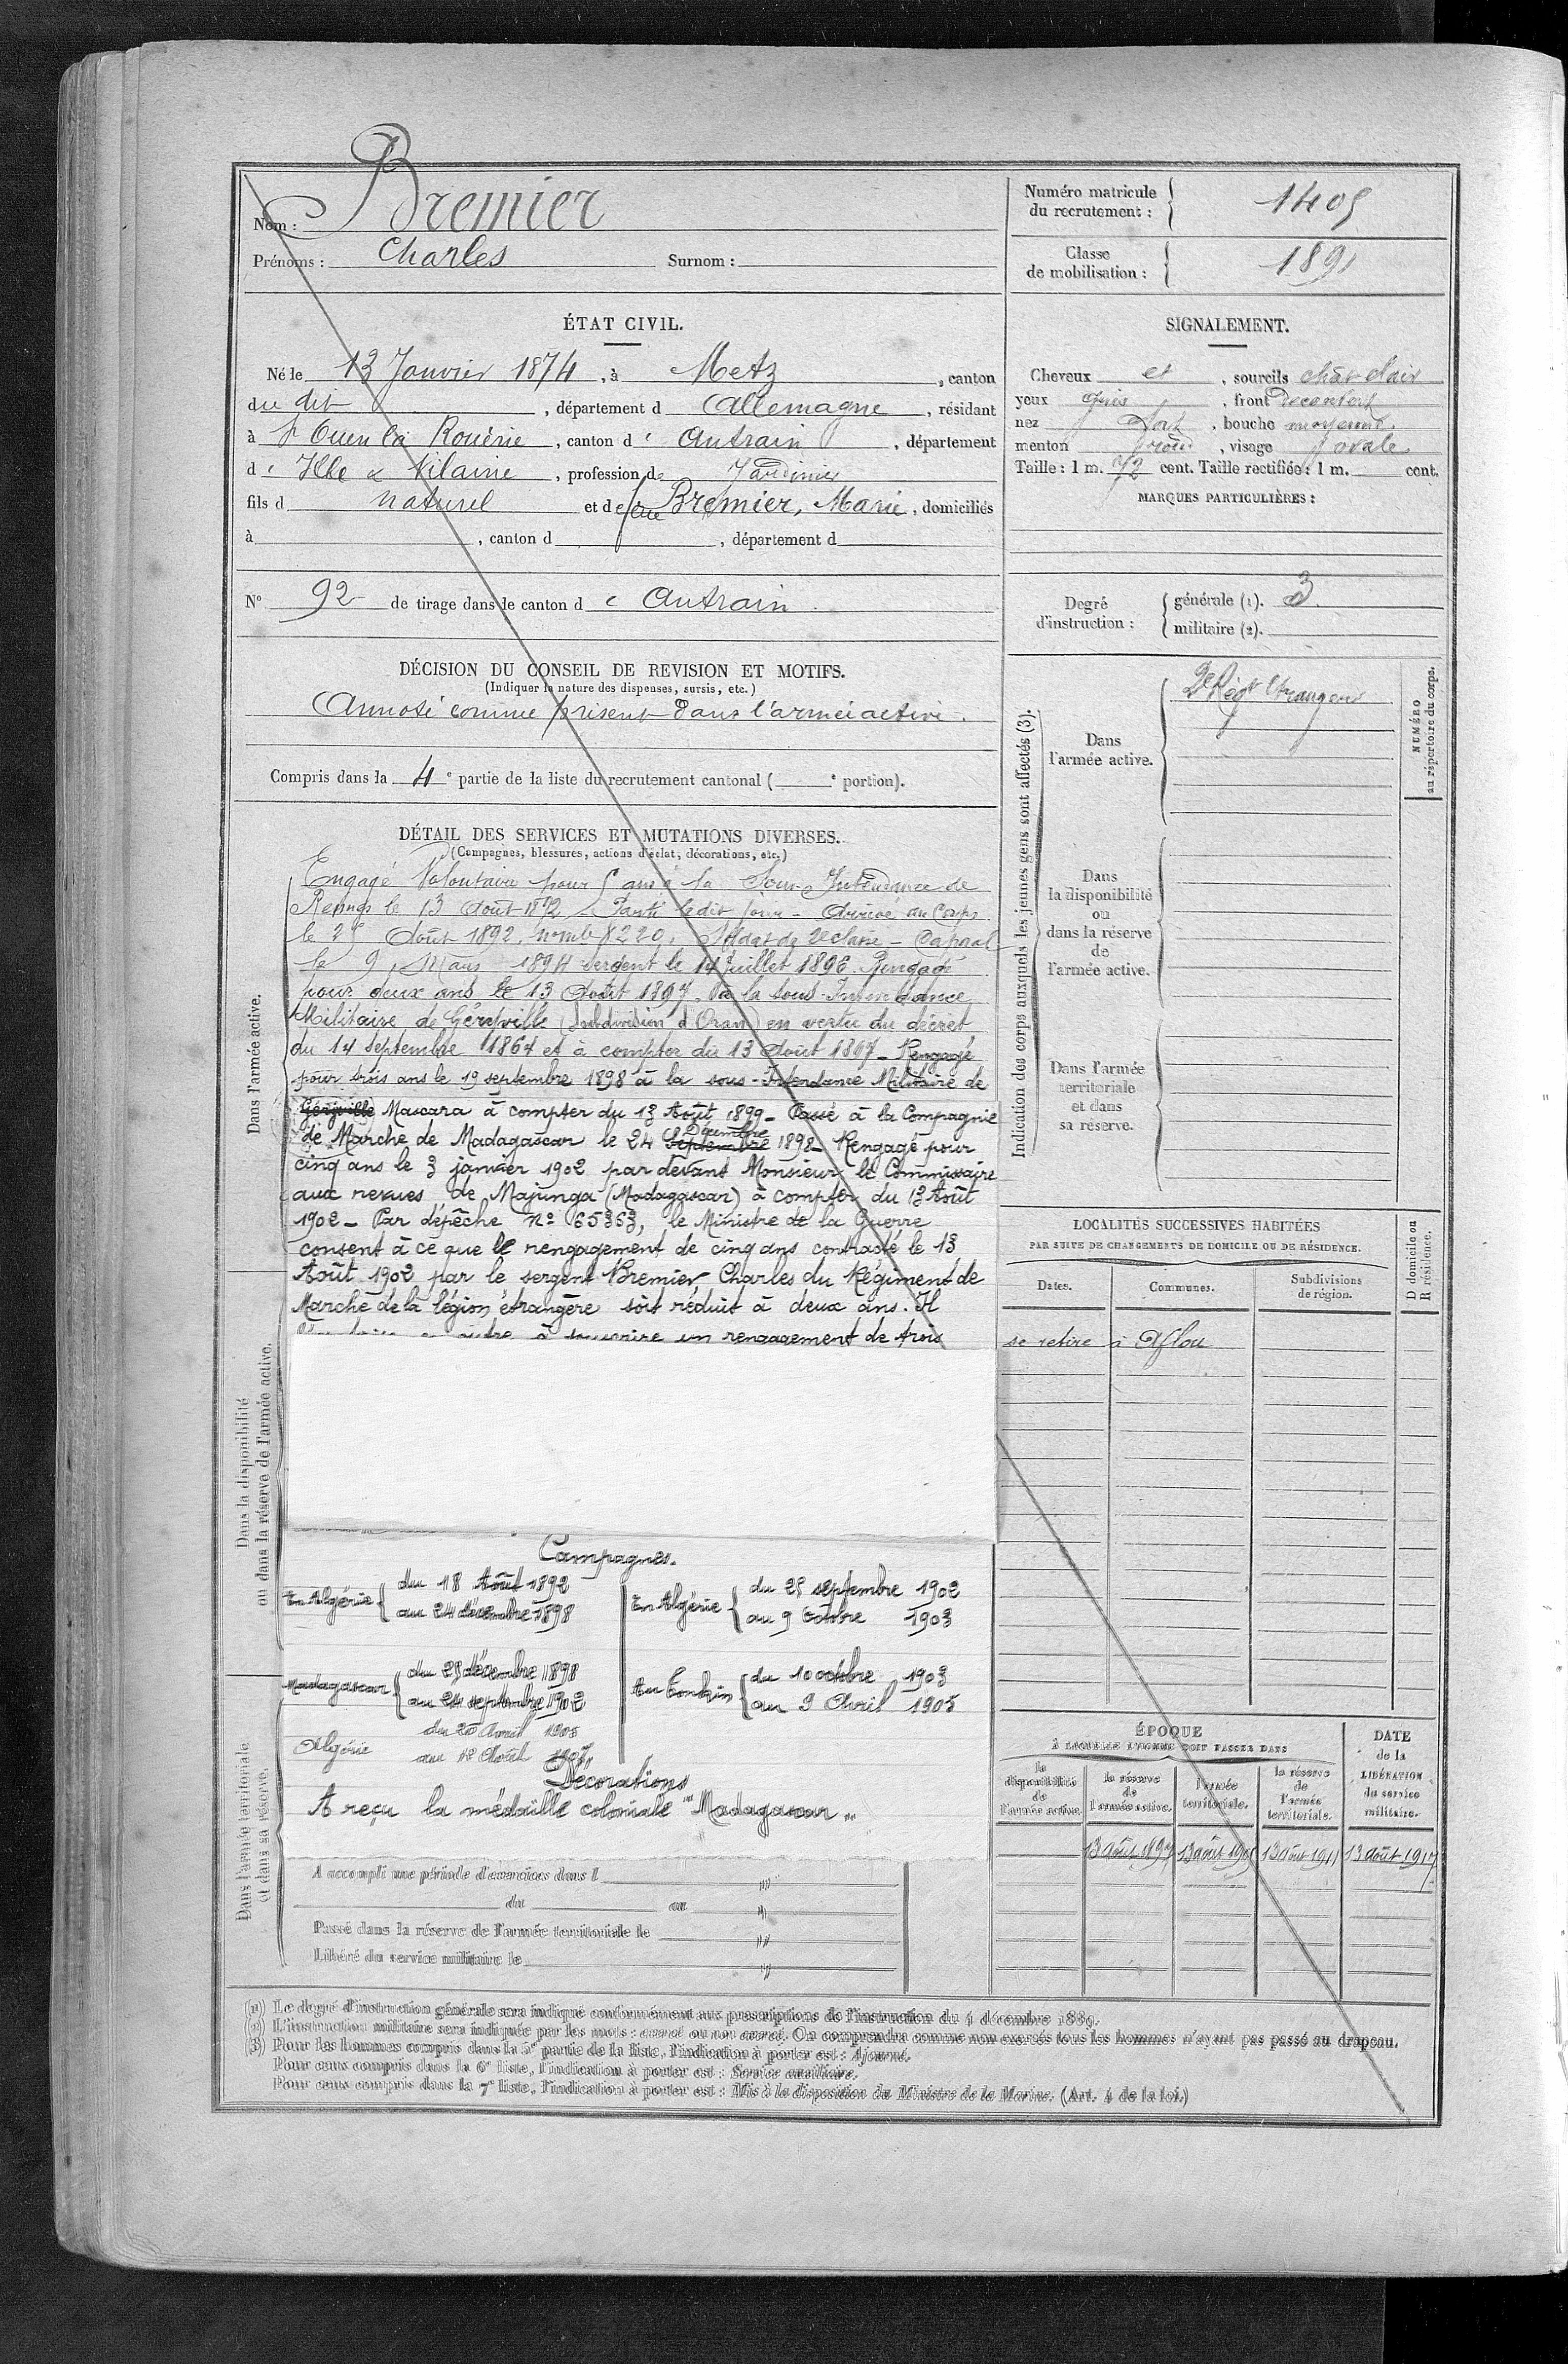 Nom : Bremier
Prénoms : Charles Surnom :
Numéro matricule du recrutement : 1405
Classe de mobilisation : 1891
ÉTAT CIVIL.
Né le 13 Janvier 1874, à Metz, canton
du dit, département d Allemagne, résidant
à St Ouen la Rouërie, canton d' Antrain, département
d' Ille & Vilaine, profession de Jardinier
fils d naturel et de feue Bremier, Marie, domiciliés
à , canton d , département d
N° 92 de tirage dans le canton d e Antrain.
SIGNALEMENT.
Cheveux et , sourcils chât clair
yeux gris , front découvert
nez fort , bouche moyenne
menton rond , visage ovale
Taille : 1 m. 72 cent. Taille rectifiée : 1 m. cent.
MARQUES PARTICULIÈRES :
Degré d'instruction : générale (1). 3.
militaire (2).
DÉCISION DU CONSEIL DE REVISION ET MOTIFS.
(Indiquer la nature des dispenses, sursis, etc.)
Annoté comme présent dans l'armée active.
Compris dans la 4e partie de la liste du recrutement cantonal ( e portion).
DÉTAIL DES SERVICES ET MUTATIONS DIVERSES.
(Campagnes, blessures, actions d'éclat, décorations, etc.)
Dans l'armée active.
Engagé Volontaire pour 5 ans à la Sous-Intendance de
Rennes le 13 Août 1892 - Parti le dit jour - Arrivé au Corps
le 25 Août 1892, 8220, Soldat de 2e classe - Caporal
le 9 Mars 1894 sergent le 14 Juillet 1896. Rengagé
pour deux ans le 13 Août 1897 à la sous-Intendance
Militaire de Géryville (Subdivision d'Oran) en vertu du décret
du 14 septembre 1864 et à compter du 13 Août 1897 - Rengagé
pour trois ans le 19 septembre 1898 à la sous-Intendance Militaire de
Géryville Mascara à compter du 13 Août 1899 - Passé à la Compagnie
de Marche de Madagascar le 24 septembre Décembre 1898 - Rengagé pour
cinq ans le 3 janvier 1902 par devant Monsieur le Commissaire
aux revues de Majunga (Madagascar) à compter du 13 Août
1902 - Par dépêche n° 65363, le Ministre de la Guerre
consent à ce que le rengagement de cinq ans contracté le 13
Août 1902 par le sergent Bremier Charles du Régiment de
Marche de la légion étrangère soit réduit à deux ans. Il
à souscrire un rengagement de trois
Dans la disponibilité
ou dans la réserve de l'armée active.
Campagnes.
En Algérie du 18 Août 1892
au 24 décembre 1898
En Algérie du 25 septembre 1902
au 9 Octobre 1903
Madagascar du 25 décembre 1898
au 24 septembre 1902
Au Tonkin du 10 octobre 1903
au 9 Avril 1905
Algérie du 20 Avril 1905
au 12 Août 1907
Décorations
A reçu la médaille coloniale "Madagascar"
Dans l'armée territoriale
et dans sa réserve.
A accompli une période d'exercices dans l
du au
Passé dans la réserve de l'armée territoriale le
Libéré du service militaire le
Indication des corps auxquels les jeunes gens sont affectés (3).
NUMÉRO
au répertoire du corps.
Dans
l'armée active.
2e Régt Etranger
Dans
la disponibilité
ou
dans la réserve
de
l'armée active.
Dans l'armée
territoriale
et dans
sa réserve.
LOCALITÉS SUCCESSIVES HABITÉES
PAR SUITE DE CHANGEMENTS DE DOMICILE OU DE RÉSIDENCE.
Dates. Communes. Subdivisions de région. D domicile ou R résidence.
se retire à Aflou
ÉPOQUE
À LAQUELLE L'HOMME DOIT PASSER DANS
la disponibilité de l'armée active.
la réserve de l'armée active.
l'armée territoriale.
la réserve de l'armée territoriale.
DATE de la LIBÉRATION du service militaire.
13 août 1897 13 août 1905 13 août 1911 13 août 1917
(1) Le degré d'instruction générale sera indiqué conformément aux prescriptions de l'instruction du 4 décembre 1889.
(2) L'instruction militaire sera indiquée par les mots : exercé ou non exercé. On comprendra comme non exercés tous les hommes n'ayant pas passé au drapeau.
(3) Pour les hommes compris dans la 5e partie de la liste, l'indication à porter est : Ajourné.
Pour ceux compris dans la 6e liste, l'indication à porter est : Service auxiliaire.
Pour ceux compris dans la 7e liste, l'indication à porter est : Mis à la disposition du Ministre de la Marine. (Art. 4 de la loi.)